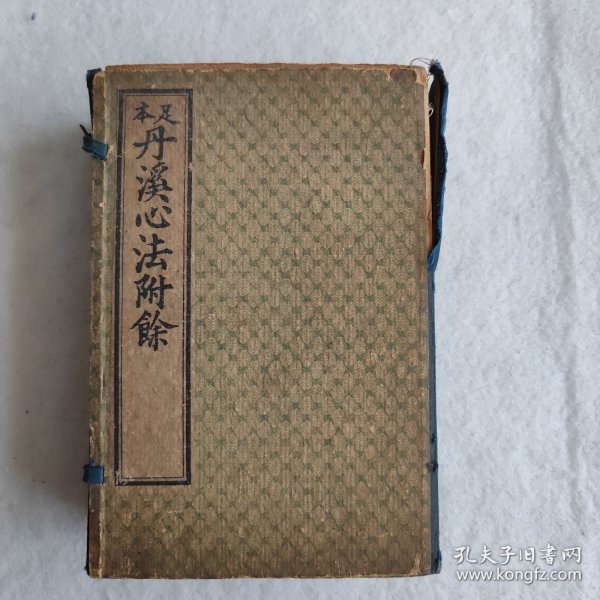 足本
丹溪心法附餘
孔夫子旧書网
www.kongfz.com